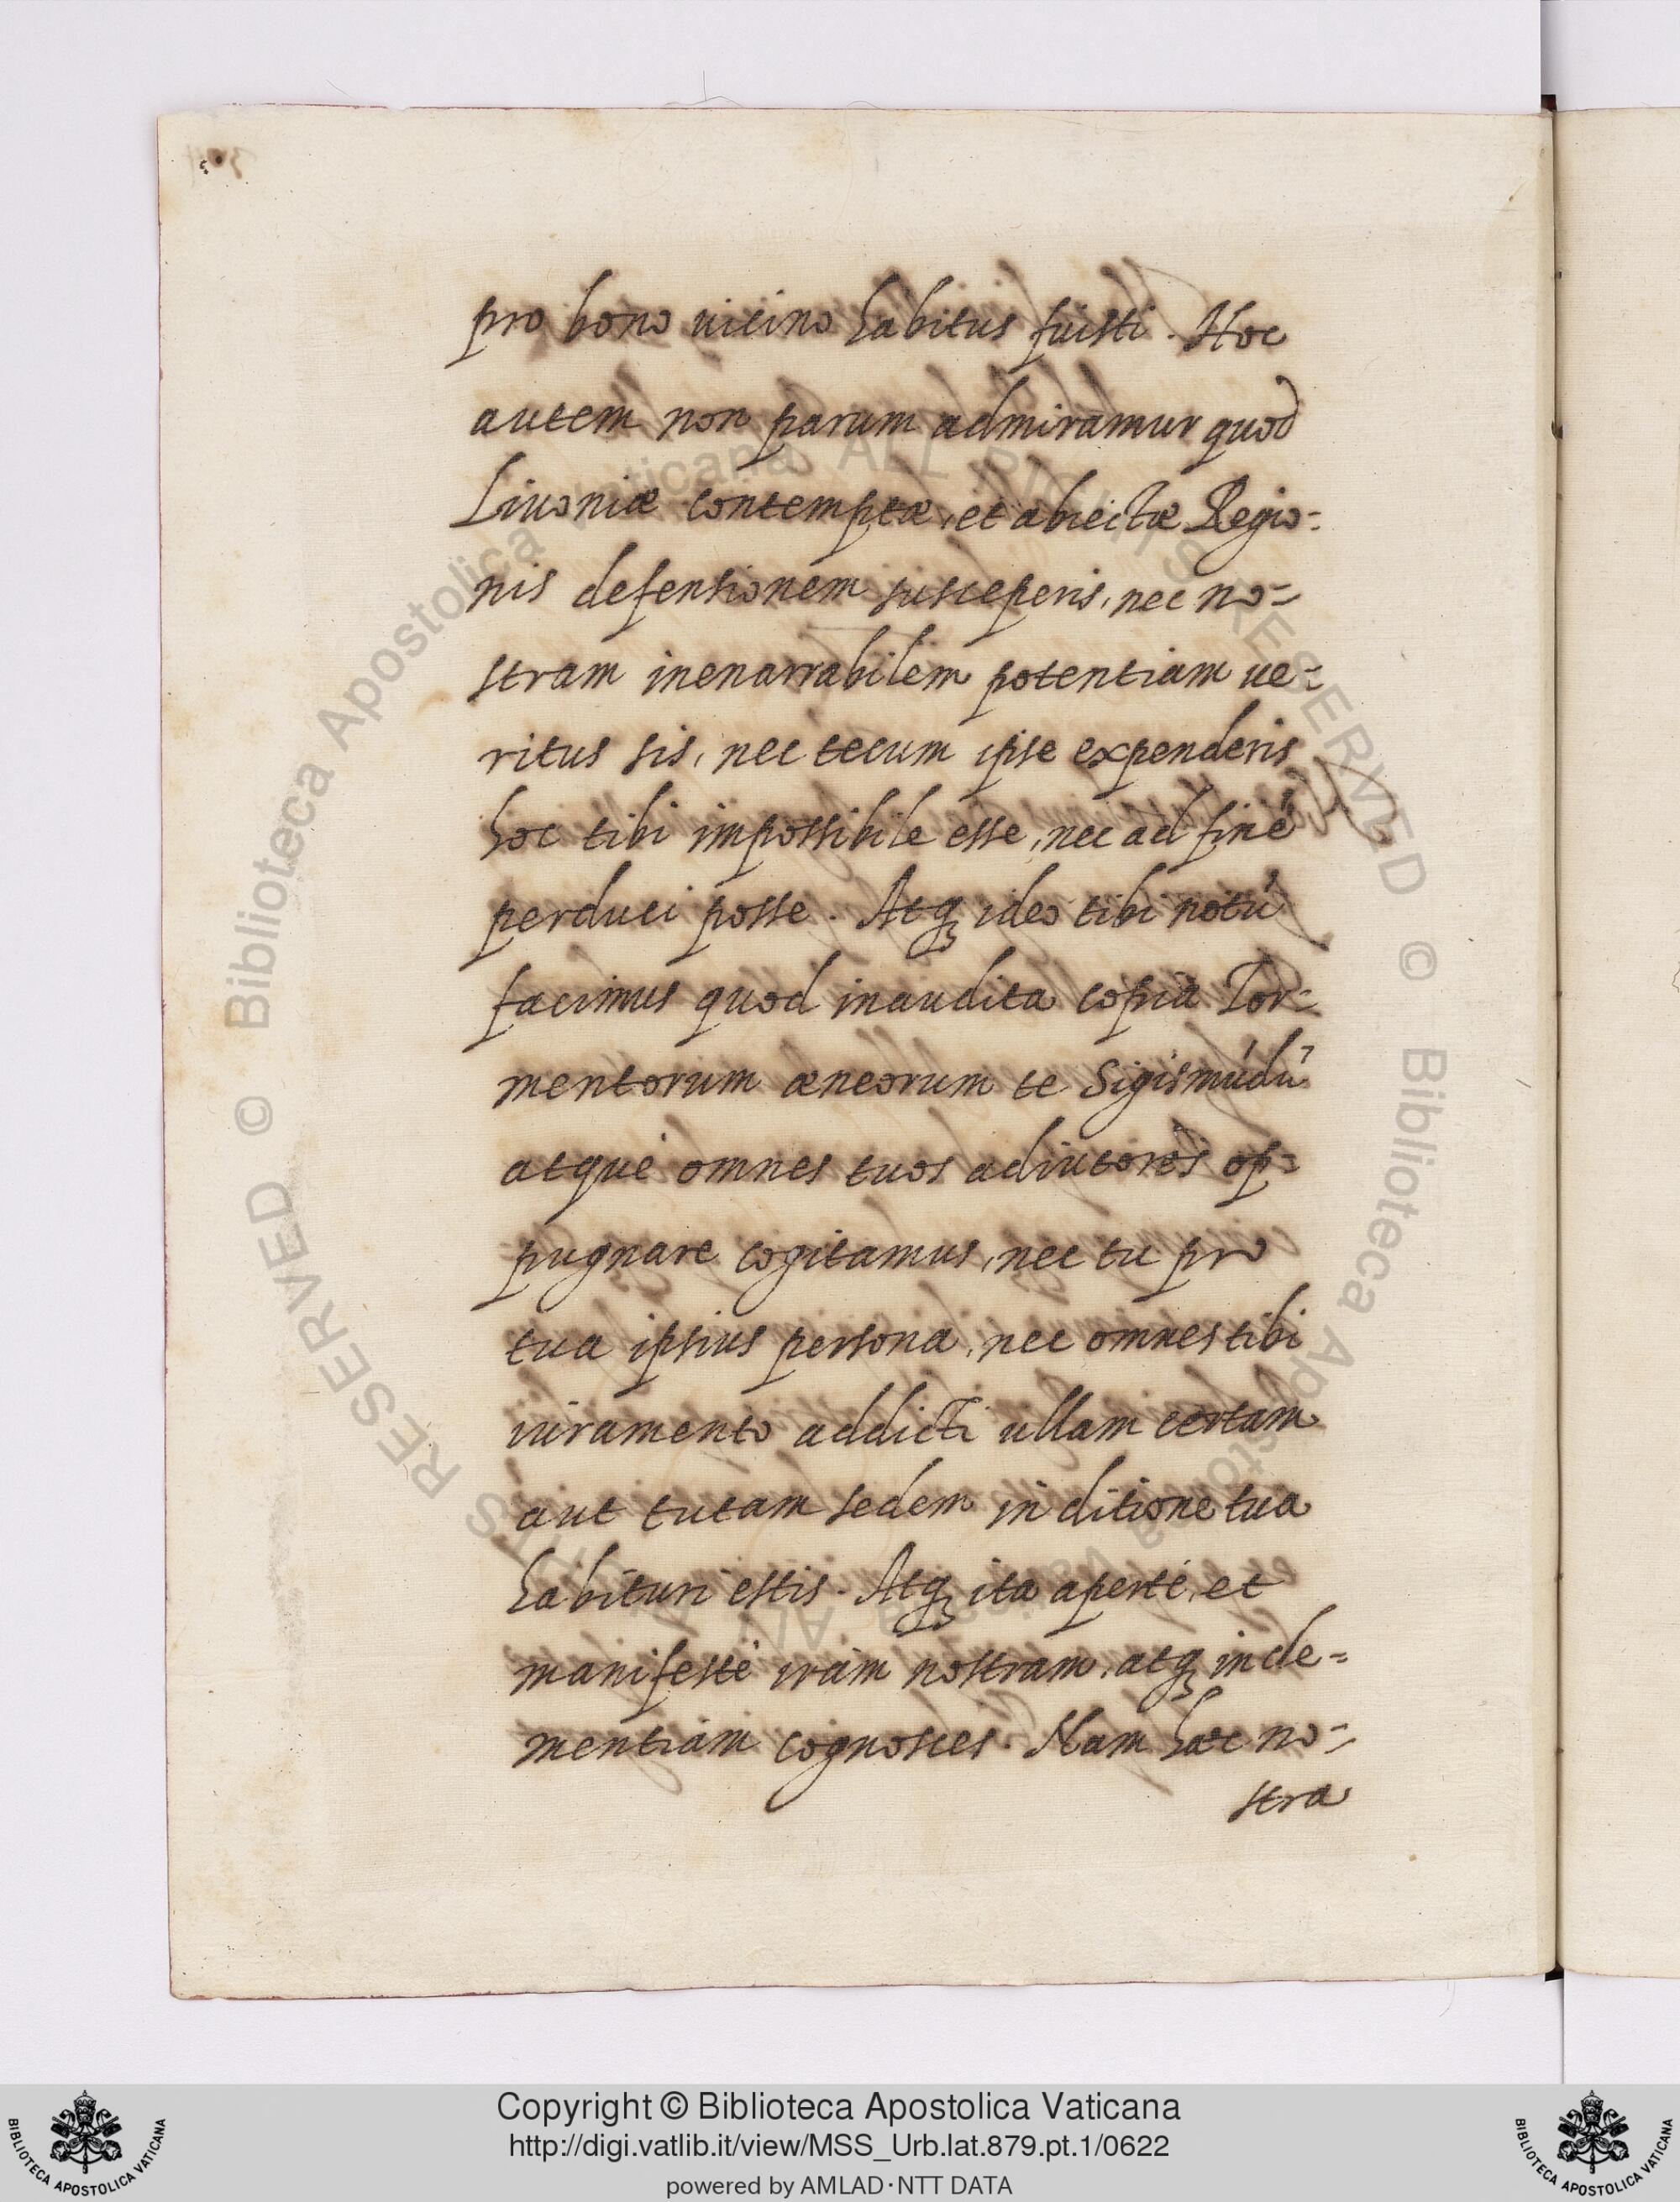 pro bono uicino habitus fuisti. Hoc
autem non parum admiramur quod
Liuoniæ contemptæ, et abiectæ Regio=
nis defensionem susceperis, nec no=
stram inenarrabilem potentiam ue=
ritus sis, nec tecum ipse expenderis
hoc tibi impossibile esse, nec ad finē
perduci posse. Atq; ideo tibi notū
facimus quod inaudita copia Tor=
mentorum æneorum te Sigismūdū
atque omnes tuos adiutores op=
pugnare cogitamus, nec tu pro
tua ipsius persona, nec omnes tibi
iuramento addicti ullam certam
aut tutam sedem in ditione tua
habituri estis. Atq; ita aperte, et
manifeste iram nostram, atq; incle=
mentiam cognosces. Nam hæc no=
stra
© Biblioteca Apostolica Vaticana ALL RIGHTS RESERVED
© Biblioteca Apostolica Vaticana ALL RIGHTS RESERVED
Copyright © Biblioteca Apostolica Vaticana
http://digi.vatlib.it/view/MSS_Urb.lat.879.pt.1/0622
powered by AMLAD·NTT DATA
BIBLIOTECA APOSTOLICA VATICANA
BIBLIOTECA APOSTOLICA VATICANA